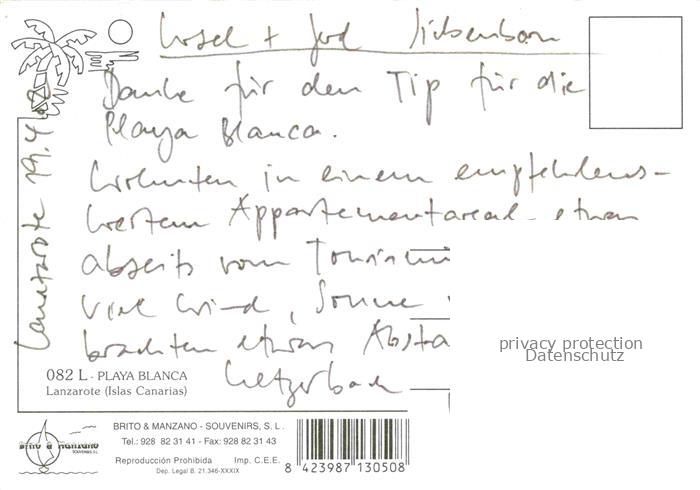 +
Danke für den Tip für die
Playa Blanca.
Wohnten in einem empfehlens-
wertem Appartementareal - etwas
abseits vom
Viel Wind, Sonne
brachten etwas
Lanzarote
082 L - PLAYA BLANCA
Lanzarote (Islas Canarias)
BRITO & MANZANO - SOUVENIRS, S. L.
Tel.: 928 82 31 41 - Fax: 928 82 31 43
Reproducción Prohibida Imp. C.E.E.
Dep. Legal B. 21.346-XXXIX
BRITO & MANZANO
SOUVENIRS S.L.
8 423987 130508
privacy protection
Datenschutz